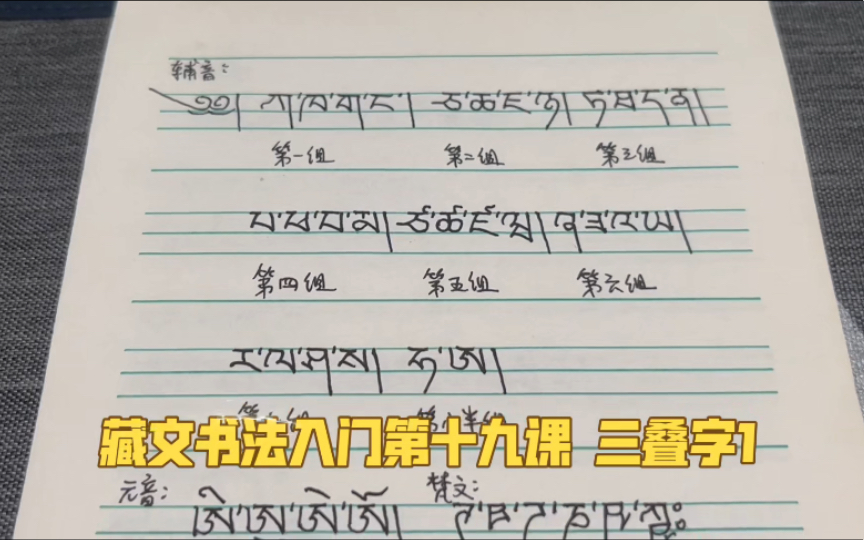 辅音:
༄༅། ཀ་ཁ་ག་ང་། ཅ་ཆ་ཇ་ཉ། ཏ་ཐ་ད་ན།
第一组 第二组 第三组
པ་ཕ་བ་མ། ཙ་ཚ་ཛ་ཝ། ཞ་ཟ་འ་ཡ།
第四组 第五组 第六组
ར་ལ་ཤ་ས། ཧ་ཨ།
藏文书法入门第十九课 三叠字1
元音: 梵文:
ཨི་ཨུ་ཨེ་ཨོ།